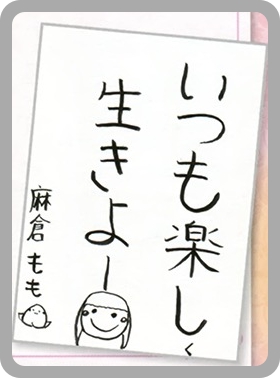 いつも楽しく
生きよー
麻倉もも